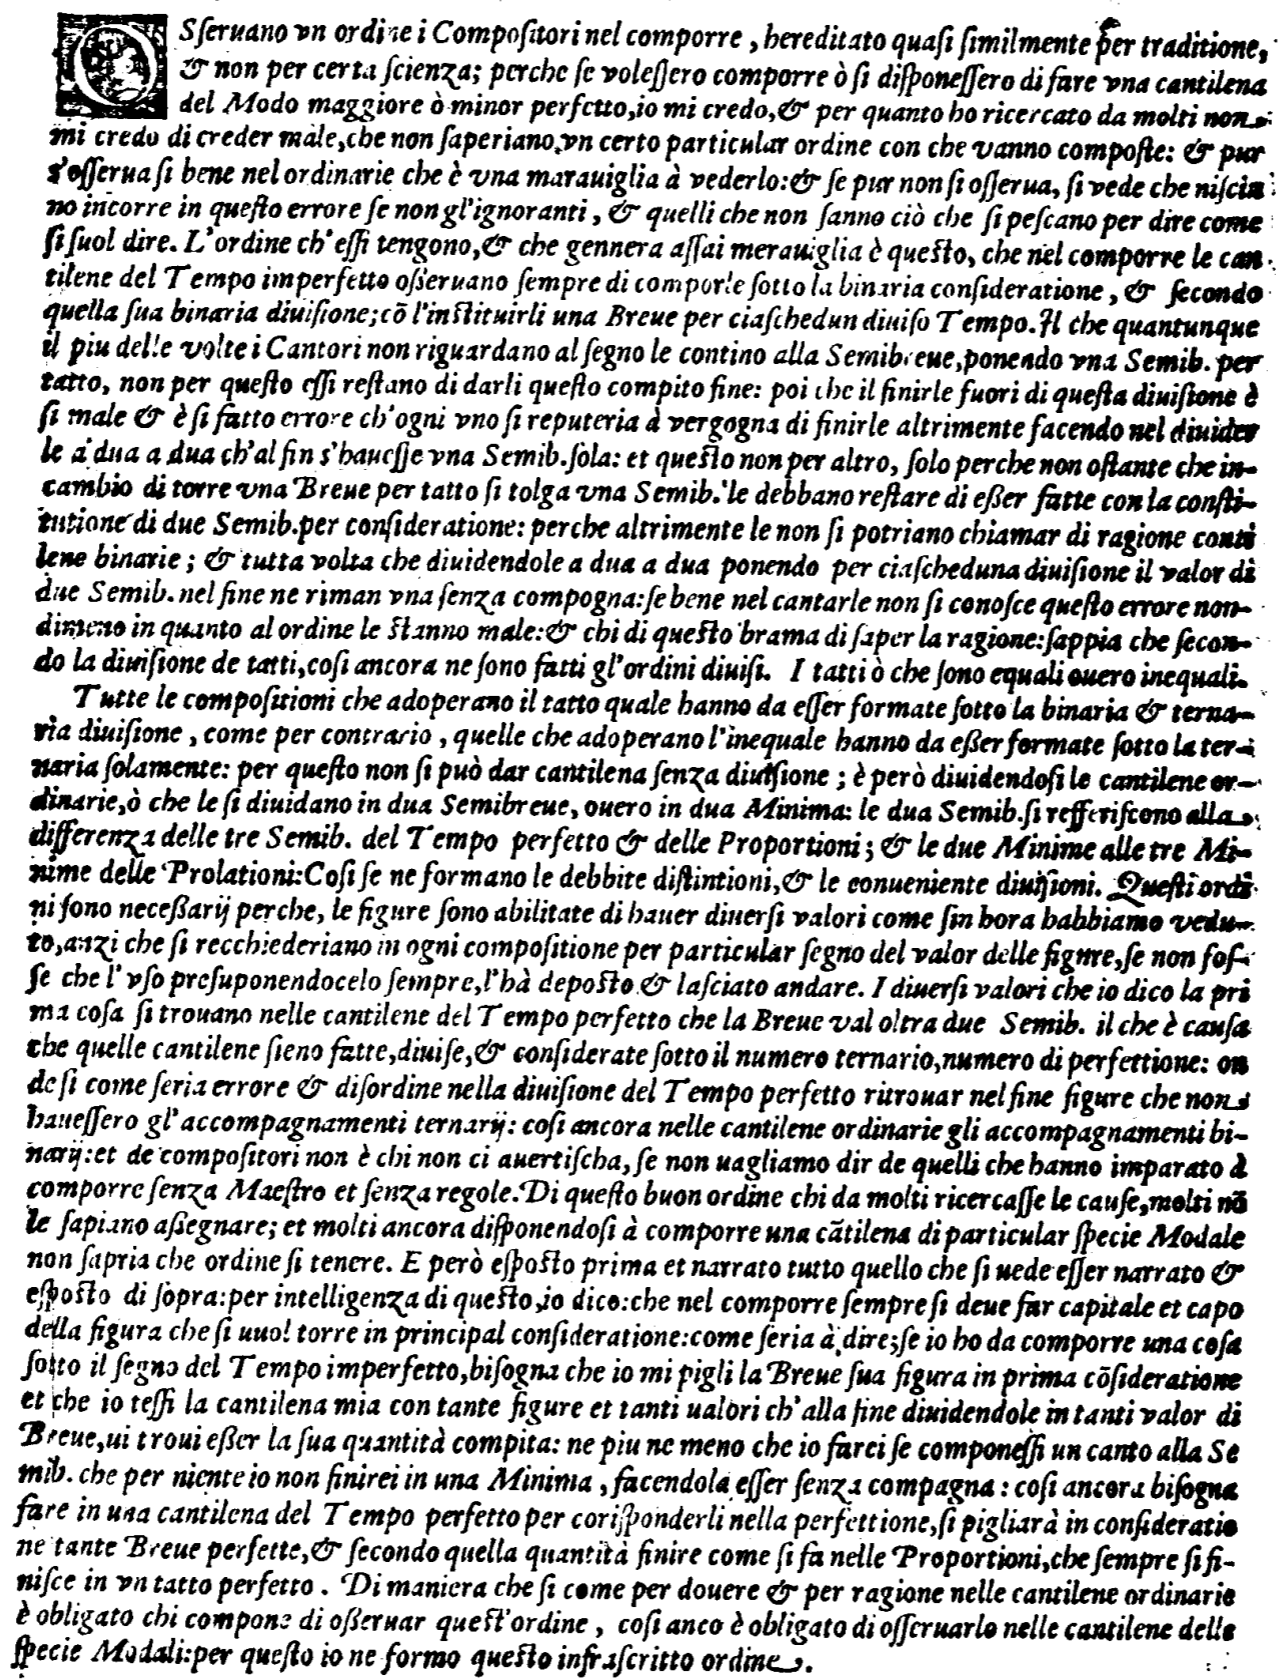 OSseruano vn ordine i Compositori nel comporre, hereditato quasi similmente per traditione,
& non per certa scienza; perche se volessero comporre ò si disponessero di fare vna cantilena
del Modo maggiore ò minor perfetto, io mi credo, & per quanto ho ricercato da molti non
mi credo di creder male, che non saperiano vn certo particular ordine con che vanno composte: & pur
s'osserua si bene nel ordinarie che è vna marauiglia à vederlo: & se pur non si osserua, si vede che nisciu
no incorre in questo errore se non gl'ignoranti, & quelli che non sanno ciò che si pescano per dire come
si suol dire. L'ordine ch'essi tengono, & che gennera assai merauiglia è questo, che nel comporre le can
tilene del Tempo imperfetto osseruano sempre di comporle sotto la binaria consideratione, & secondo
quella sua binaria diuisione; cõ l'instituirli una Breue per ciaschedun diuiso Tempo. Il che quantunque
il piu delle volte i Cantori non riguardano al segno le contino alla Semibreue, ponendo vna Semib. per
tatto, non per questo essi restano di darli questo compito fine: poi che il finirle fuori di questa diuisione è
si male & è si fatto errore ch'ogni vno si reputeria à vergogna di finirle altrimente facendo nel diuider
le a dua a dua ch'al fin s'hauesse vna Semib. sola: et questo non per altro, solo perche non ostante che in-
cambio di torre vna Breue per tatto si tolga vna Semib. le debbano restare di eßer fatte con la consti-
tutione di due Semib. per consideratione: perche altrimente le non si potriano chiamar di ragione canti
lene binarie; & tutta volta che diuidendole a dua a dua ponendo per ciascheduna diuisione il valor di
due Semib. nel fine ne riman vna senza compogna: se bene nel cantarle non si conosce questo errore non-
dimeno in quanto al ordine le stanno male: & chi di questo brama di saper la ragione: sappia che secon-
do la diuisione de tatti, cosi ancora ne sono fatti gl'ordini diuisi. I tatti ò che sono equali ouero inequali.
Tutte le compositioni che adoperano il tatto quale hanno da esser formate sotto la binaria & terna-
ria diuisione, come per contrario, quelle che adoperano l'inequale hanno da eßer formate sotto la ter-
naria solamente: per questo non si può dar cantilena senza diuisione; è però diuidendosi le cantilene or-
dinarie, ò che le si diuidano in dua Semibreue, ouero in dua Minima: le dua Semib. si refferiscono alla
differenza delle tre Semib. del Tempo perfetto & delle Proportioni; & le due Minime alle tre Mi-
nime delle Prolationi: Cosi se ne formano le debbite distintioni, & le conueniente diuisioni. Questi ordi
ni sono neceßarij perche, le figure sono abilitate di hauer diuersi valori come sin hora habbiamo vedu-
to, anzi che si recchiederiano in ogni compositione per particular segno del valor delle figure, se non fos-
se che l'vso presuponendocelo sempre, l'hà deposto & lasciato andare. I diuersi valori che io dico la pri
ma cosa si trouano nelle cantilene del Tempo perfetto che la Breue val oltra due Semib. il che è causa
che quelle cantilene sieno fatte, diuise, & considerate sotto il numero ternario, numero di perfettione: on
de si come seria errore & disordine nella diuisione del Tempo perfetto ritrouar nel fine figure che non
hauessero gl'accompagnamenti ternarij: cosi ancora nelle cantilene ordinarie gli accompagnamenti bi-
narij: et de compositori non è chi non ci auertischa, se non uagliamo dir de quelli che hanno imparato à
comporre senza Maestro et senza regole. Di questo buon ordine chi da molti ricercasse le cause, molti nõ
le sapiano aßegnare; et molti ancora disponendosi à comporre una cãtilena di particular specie Modale
non sapria che ordine si tenere. E però esposto prima et narrato tutto quello che si uede esser narrato &
esposto di sopra: per intelligenza di questo, io dico: che nel comporre sempre si deue far capitale et capo
della figura che si uuol torre in principal consideratione: come seria à dire; se io ho da comporre una cosa
sotto il segno del Tempo imperfetto, bisogna che io mi pigli la Breue sua figura in prima cõsideratione
et che io tessi la cantilena mia con tante figure et tanti ualori ch'alla fine diuidendole in tanti valor di
Breue, ui troui eßer la sua quantità compita: ne piu ne meno che io farei se componessi un canto alla Se
mib. che per niente io non finirei in una Minima, facendola esser senza compagna: cosi ancora bisogna
fare in una cantilena del Tempo perfetto per corisponderli nella perfettione, si pigliarà in consideratio
ne tante Breue perfette, & secondo quella quantità finire come si fa nelle Proportioni, che sempre si fi-
nisce in vn tatto perfetto. Di maniera che si come per douere & per ragione nelle cantilene ordinarie
è obligato chi compone di oßeruar quest'ordine, cosi anco è obligato di osseruarlo nelle cantilene delle
specie Modali: per questo io ne formo questo infrascritto ordine.